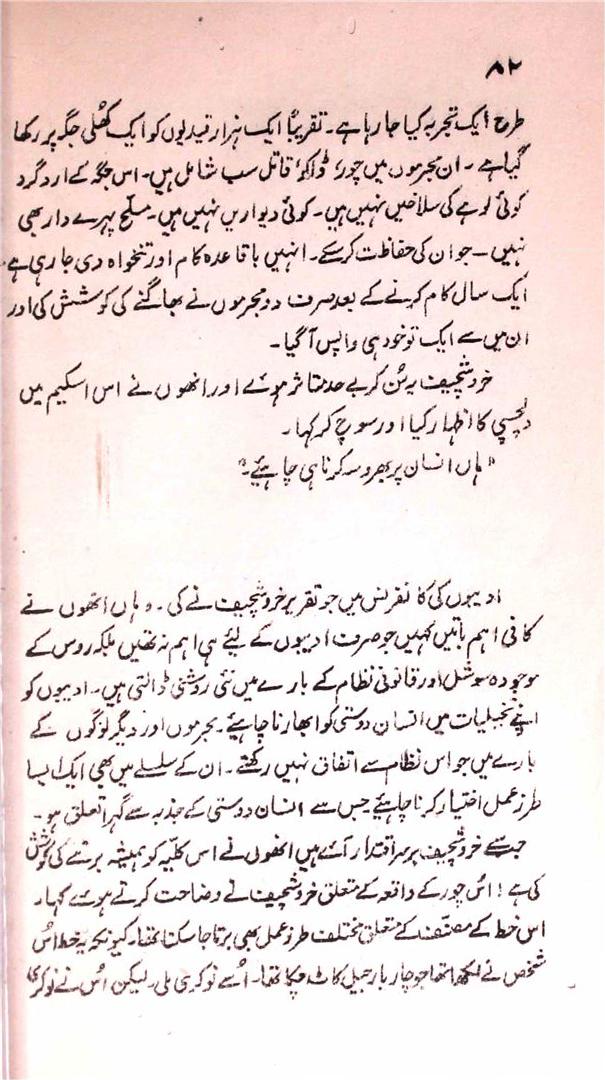 ۸۲
طرح ایک تجربہ کیا جا رہا ہے۔ تقریباً ایک ہزار قیدیوں کو ایک کھلی جگہ پر رکھا
گیا ہے۔ ان مجرموں میں چور، ڈاکو، قاتل سب شامل ہیں۔ اس جگہ کے ارد گرد
کوئی لوہے کی سلاخیں نہیں ہیں۔ کوئی دیواریں نہیں ہیں۔ مسلح پہرے دار بھی
نہیں ۔ جو ان کی حفاظت کر سکے۔ انہیں باقاعدہ کام اور تنخواہ دی جا رہی ہے۔
ایک سال کام کرنے کے بعد صرف دو مجرموں نے بھاگنے کی کوشش کی اور
ان میں سے ایک تو خود ہی واپس آ گیا۔
خروشچیف یہ سُن کر بے حد متاثر ہوئے اور انھوں نے اس اسکیم میں
دلچسپی کا اظہار کیا اور سوچ کر کہا۔
"ہاں انسان پر بھروسہ کرنا ہی چاہیئے۔"
ادیبوں کی کانفرنس میں جو تقریر خروشچیف نے کی۔ وہاں انھوں نے
کافی اہم باتیں کہیں جو صرف ادیبوں کے لیئے ہی اہم نہ تھیں بلکہ روس کے
موجودہ سوشل اور قانونی نظام کے بارے میں نئی روشنی ڈالتی ہیں۔ ادیبوں کو
اپنے تخیلیات میں انسان دوستی کو ابھارنا چاہیئے۔ مجرموں اور دیگر لوگوں کے
بارے میں جو اس نظام سے اتفاق نہیں رکھتے۔ ان کے سلسلے میں بھی ایک ایسا
طرز عمل اختیار کرنا چاہیئے جس سے انسان دوستی کے جذبہ سے گہرا تعلق ہو۔
جب سے خروشچیف برسر اقتدار آئے ہیں انھوں نے اس کلیّہ کو ہمیشہ برتنے کی کوشش
کی ہے! اس چور کے واقعہ کے متعلق خروشچیف نے وضاحت کرتے ہوئے کہا۔
اس خط کے مصنف کے متعلق مختلف طرز عمل بھی برتا جا سکتا تھا۔ کیونکہ یہ خط اُس
شخص نے لکھا تھا جو چار بار جیل کاٹ چکا تھا۔ اُسے نوکری ملی۔ لیکن اُس نے نوکری